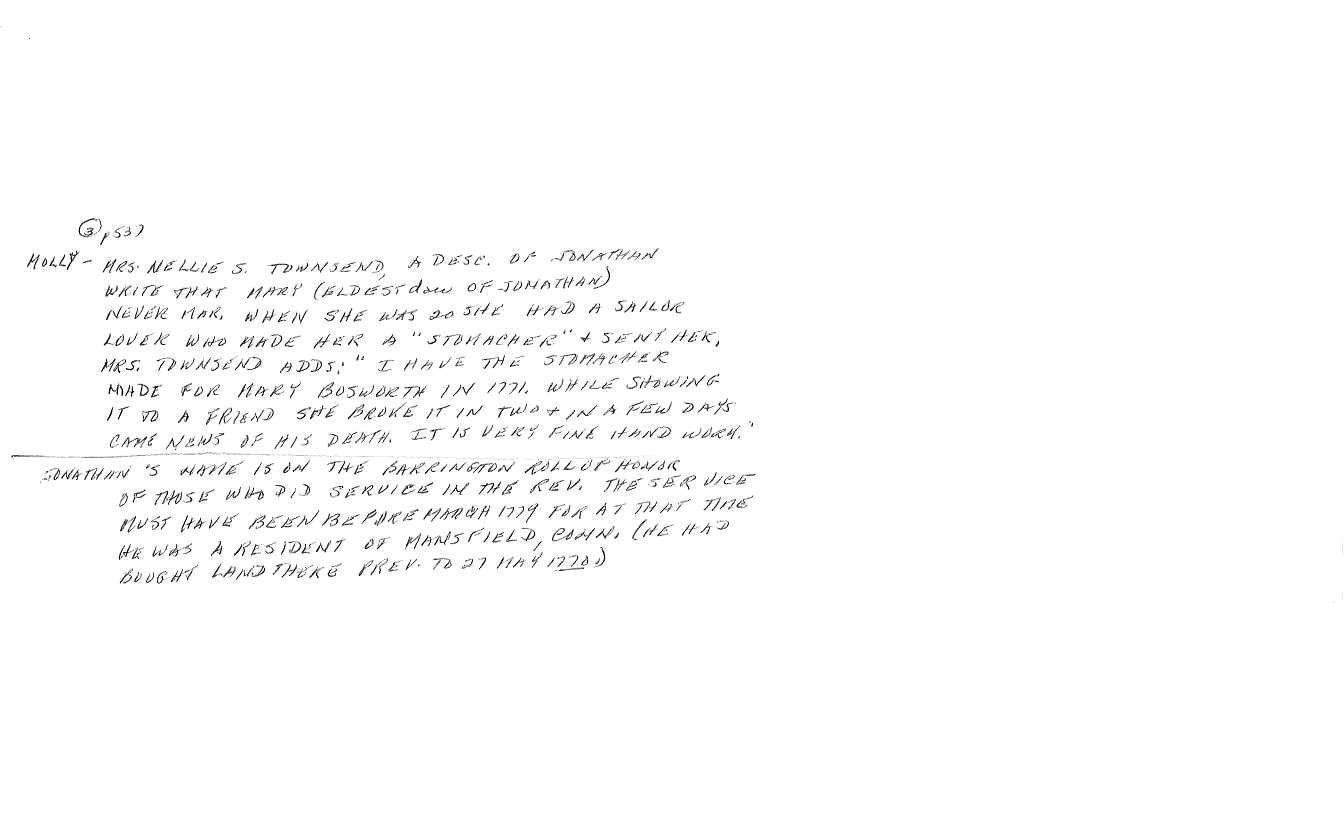 ③ p537
MOLLY - MRS. NELLIE S. TOWNSEND, A DESC. OF JONATHAN
WRITE THAT MARY (ELDEST dau OF JONATHAN)
NEVER MAR. WHEN SHE WAS 20 SHE HAD A SAILOR
LOVER WHO MADE HER A "STOMACHER" + SENT HER,
MRS. TOWNSEND ADDS: "I HAVE THE STOMACHER
MADE FOR MARY BOSWORTH IN 1771. WHILE SHOWING
IT TO A FRIEND SHE BROKE IT IN TWO + IN A FEW DAYS
CAME NEWS OF HIS DEATH. IT IS VERY FINE HAND WORK."
JONATHAN'S NAME IS ON THE BARRINGTON ROLL OF HONOR
OF THOSE WHO DID SERVICE IN THE REV. THE SERVICE
MUST HAVE BEEN BEFORE MARCH 1779 FOR AT THAT TIME
HE WAS A RESIDENT OF MANSFIELD, CONN. (HE HAD
BOUGHT LAND THERE PREV. TO 27 MAY 1770.)